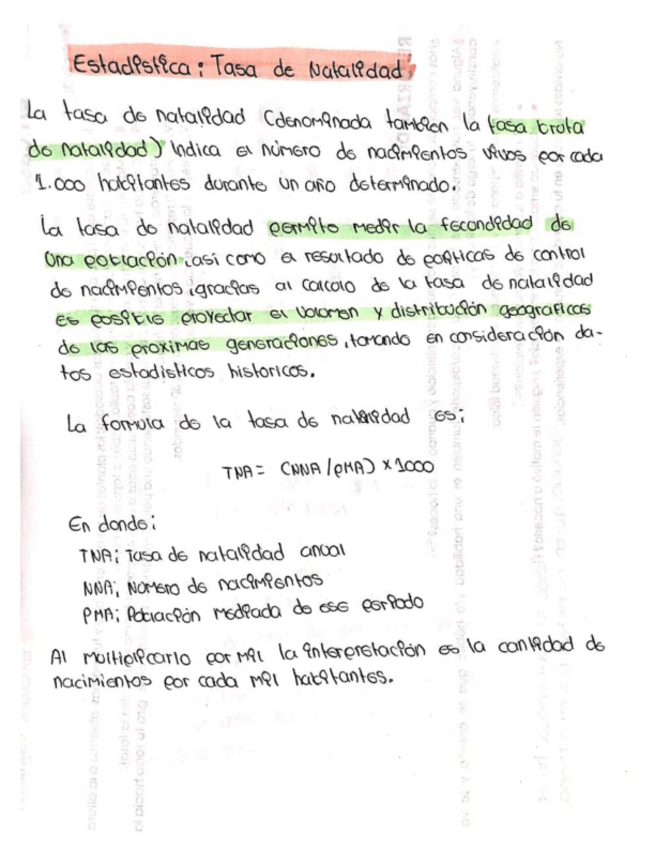 Estadística: Tasa de Natalidad
La tasa de natalidad (denominada tambien la tasa bruta
de natalidad) indica el número de nacimientos vivos por cada
1.000 habitantes durante un año determinado.
La tasa de natalidad permite medir la fecondidad de
una población, asi como el resultado de políticas de control
de nacimientos, gracias al calculo de la tasa de natalidad
es posible proyectar el volumen y distribución geograficas
de las proximas generaciones, tomando en consideración da-
tos estadisticos historicos.
La formula de la tasa de natalidad es:
TNA = (NNA/PMA) x 1000
En donde:
TNA: Tasa de natalidad anual
NNA: Número de nacimientos
PMA: Población mediada de ese periodo
Al multiplicarlo por mil la interpretación es la cantidad de
nacimientos por cada mil habitantes.